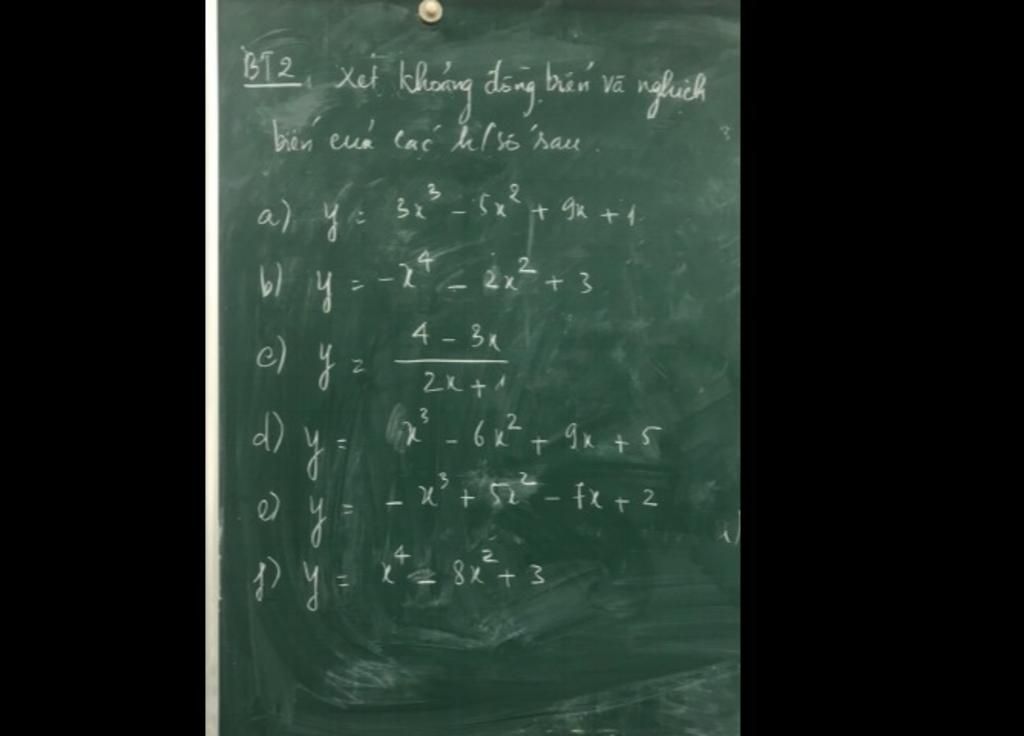 BT2. Xét khoảng đồng biến và nghịch
biến của các h/số sau.
a) y = 3x³ - 5x² + 9x + 1.
b) y = -x⁴ - 2x² + 3
c) y = (4 - 3x)/(2x + 1)
d) y = x³ - 6x² + 9x + 5
e) y = -x³ + 5x² - 7x + 2
f) y = x⁴ - 8x² + 3